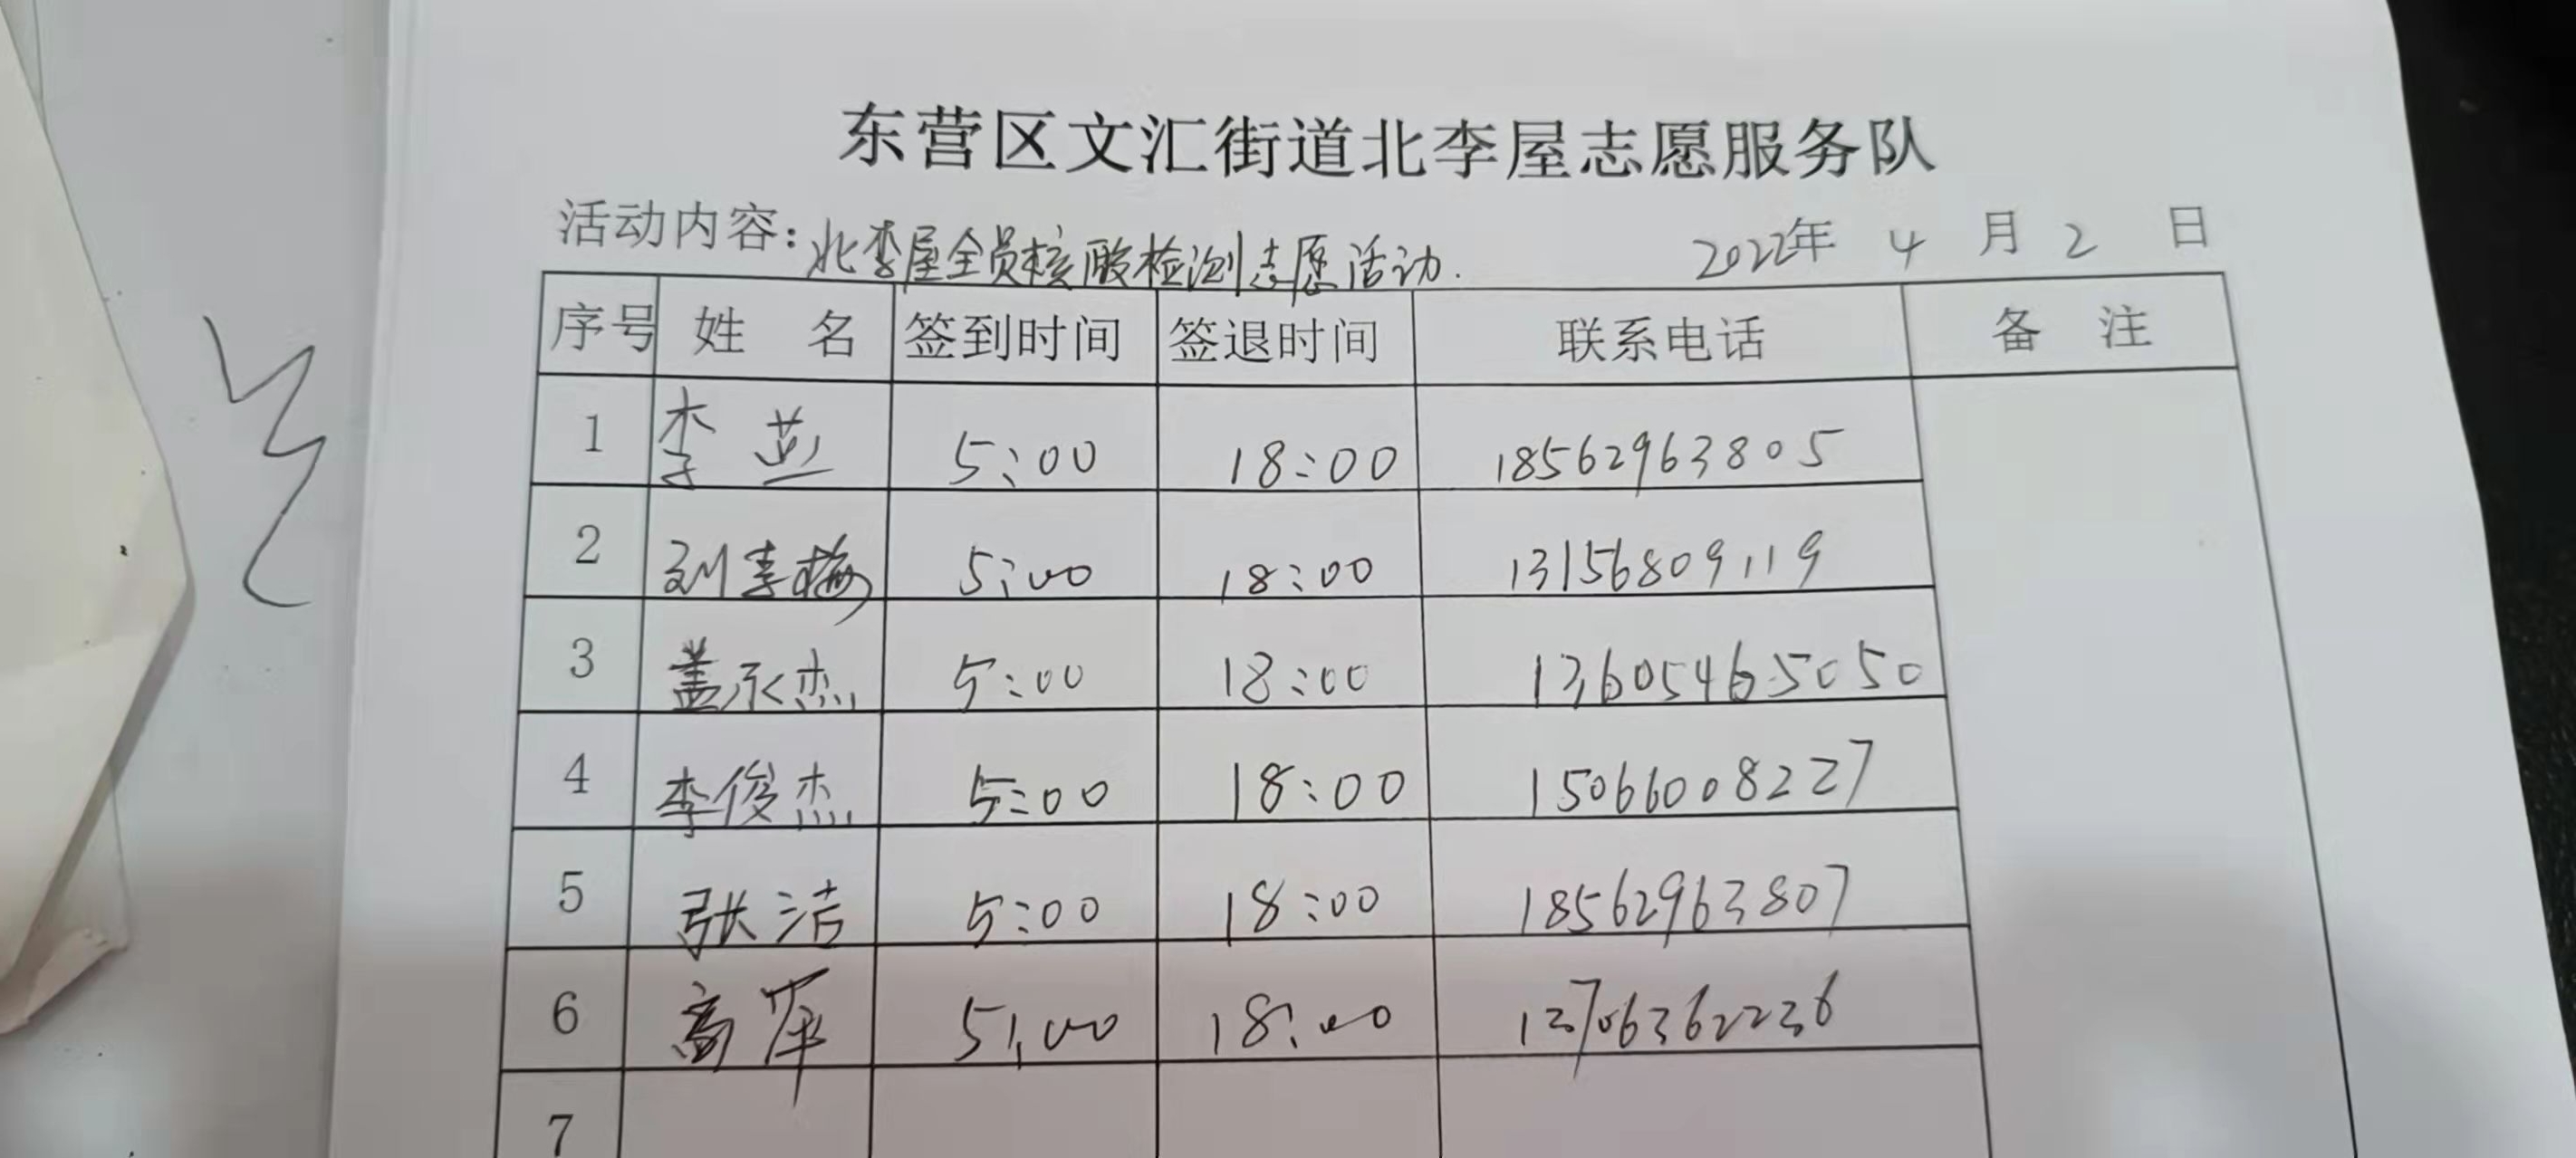 东营区文汇街道北李屋志愿服务队
活动内容：北李屋全员核酸检测志愿活动. 2022年 4 月 2 日
序号 姓 名 签到时间 签退时间 联系电话 备 注
1 李 5:00 18:00 18562963805
2 刘李梅 5:00 18:00 13156809119
3 盖永杰 5:00 18:00 13605465050
4 李俊杰 5:00 18:00 15066008227
5 张洁 5:00 18:00 18562963807
6 高萍 5:00 18:00 13706362236
7